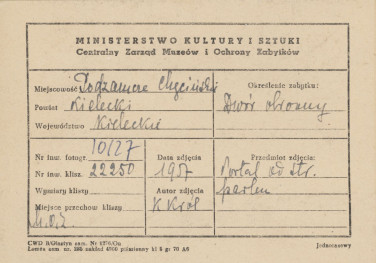 MINISTERSTWO KULTURY I SZTUKI
Centralny Zarząd Muzeów i Ochrony Zabytków
Miejscowość Podzamcze Chęcińskie
Określenie zabytku:
Powiat Kielecki
Dwór obronny
Województwo Kieleckie
10/27
Nr inw. fotogr.
Data zdjęcia
Przedmiot zdjęcia:
Nr inw. klisz. 22250
1957
Portal od str.
Wymiary kliszy
Autor zdjęcia
parku
Miejsce przechow. kliszy
K Król
CWD
Jednorazowy